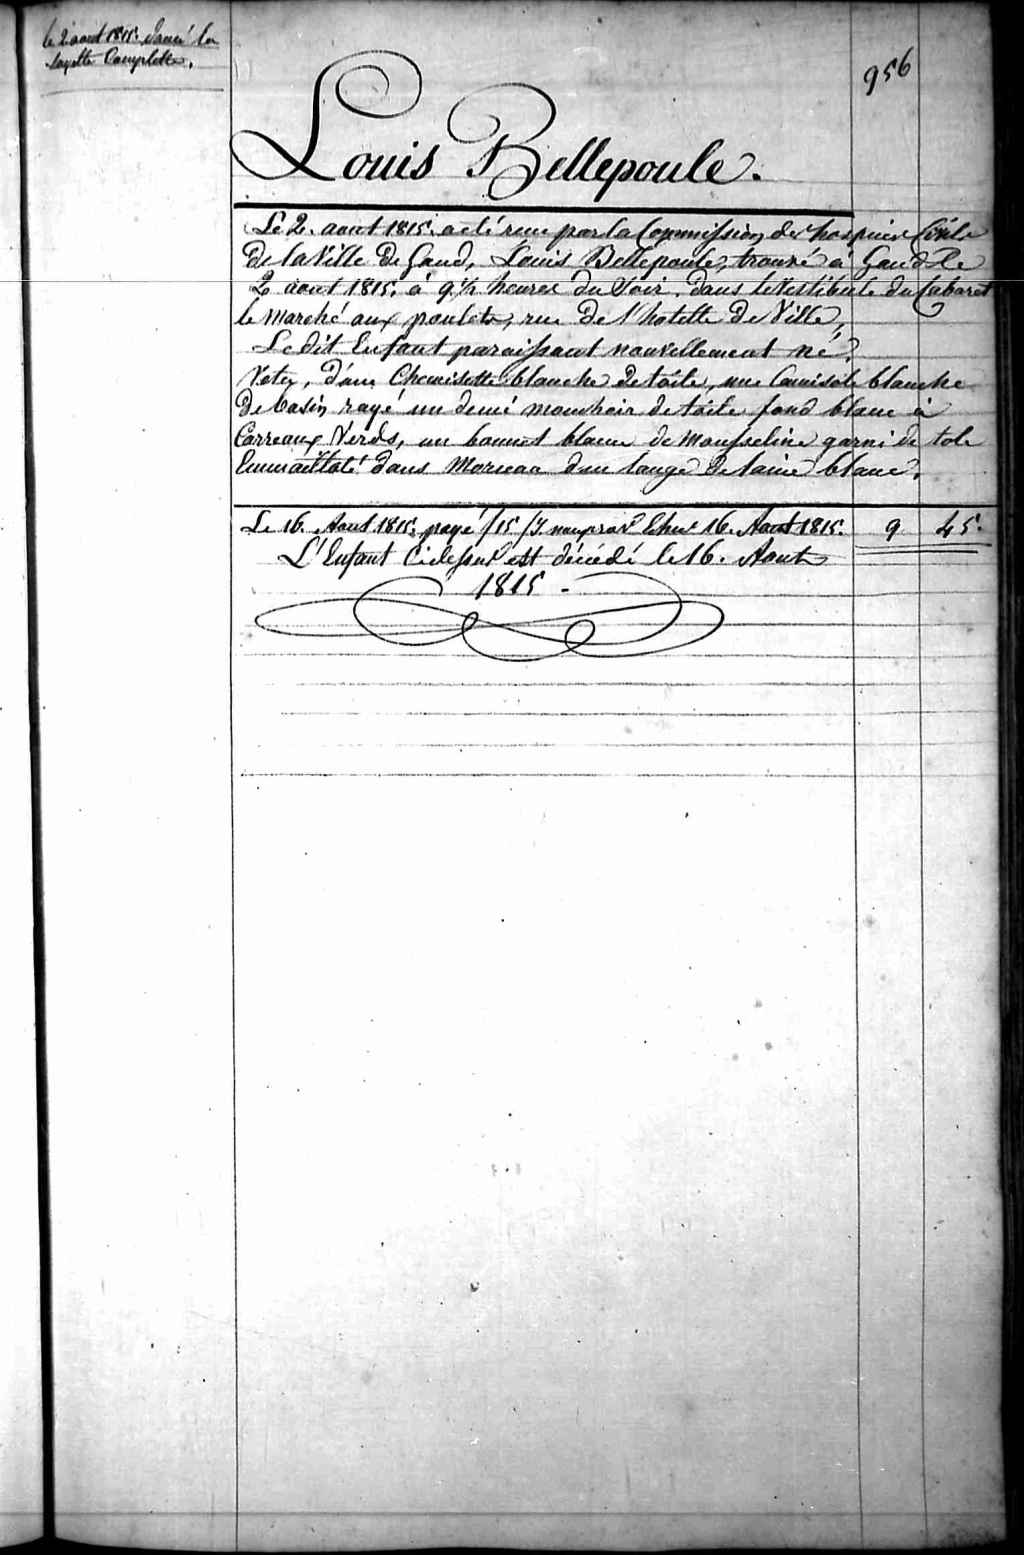 le 2 aout 1815. donné la
layette Complette.
956
Louis Bellepoule.
Le 2. aout 1815. a eté recu par la Commission des hospices Civils
de la Ville de Gand, Louis Bellepoule, trouvé à Gand le
2 aout 1815. à 9 1/2 heures du Soir. dans le Vestibule du Cabaret
le Marché aux poulets, rue de l'hotelle de Ville,
Le dit Enfant paraissant nouvellement né.
Vetu, d'une Chemisette blanche de toile, une Camisole blanche
de basin rayé un demi mouchoir de toile fond blanc à
Carreaux Verds, un bonnet blanc de Mousseline garni de tule
Emmailloté dans Morceau d'un lange de laine blanc.
Le 16. Aout 1815. payé 16. Aout 1815. 9 45.
L'Enfant Cidessus est décédé le 16. Aout
1815 -